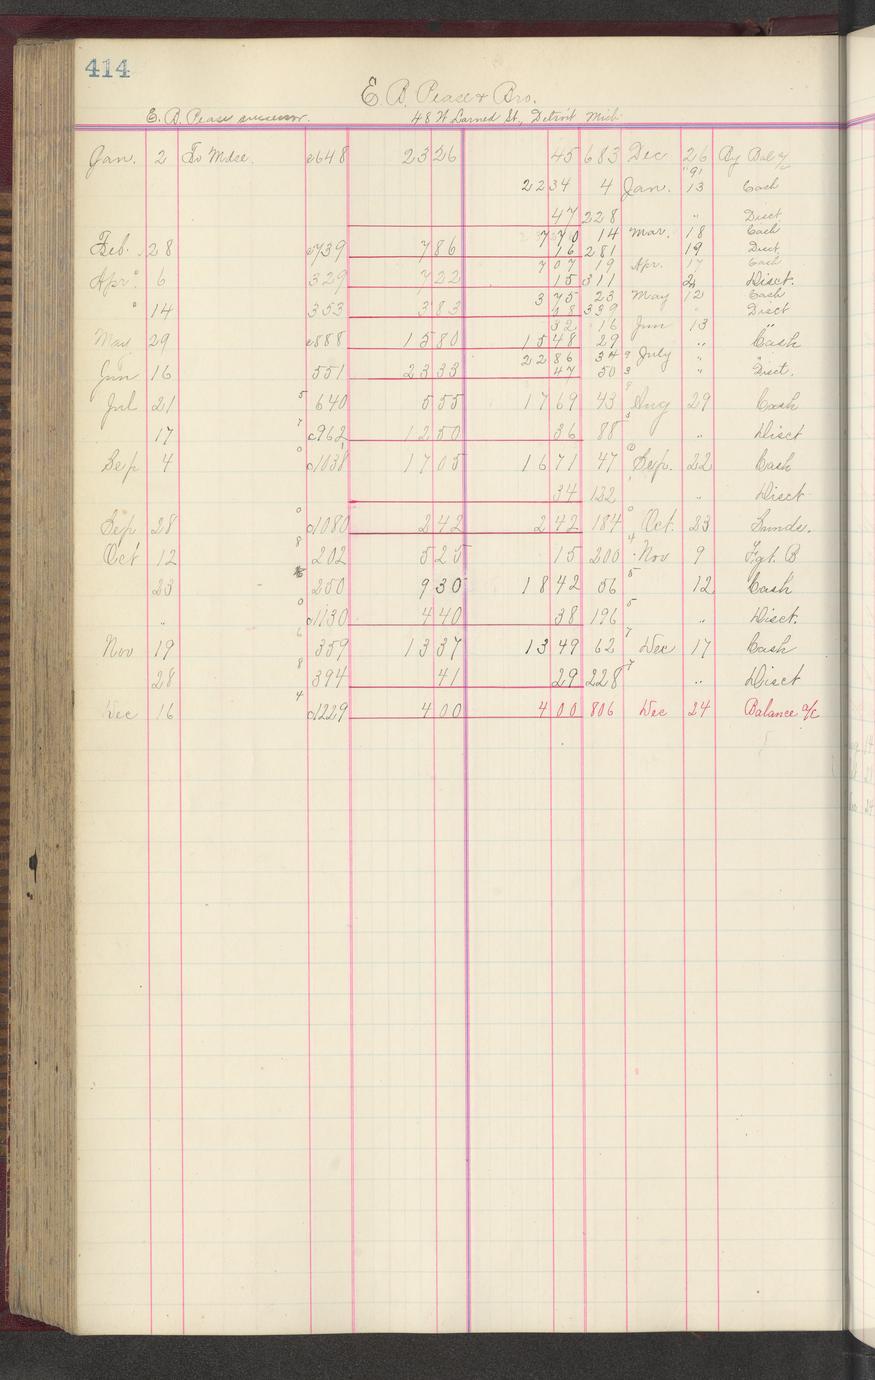 414
E. B. Pease & Bro.
E. B. Pease successor. 48 W Larned St., Detroit Mich
Jan. 2 To Mdse. c648 23 26 45 683 Dec 26 By Bal
"91
22 34 4 Jan. 13 Cash
47 228 " Disct
7 70 14 Mar. 18 Cash
Feb. 28 c739 7 86 16 281 19 Disct
7 07 19 Apr. 17 Cash
Apr. 6 329 7 22 15 311 Disct.
3 75 23 May 12 Cash
" 14 353 3 83 339 " Disct
32 16 Jun 13 "
May 29 c888 15 80 15 48 29 " Cash
22 86 34 July " "
Jun 16 551 23 33 47 50 " Disct.
Jul 21 640 5 55 17 69 43 Aug 29 Cash
17 c962 12 50 36 88 " Disct
Sep 4 c1038 17 05 16 71 47 Sep. 22 Cash
34 122 " Disct
Sep 28 c1080 2 42 2 42 184 Oct. 23 Sunds.
Oct 12 202 5 25 15 200 Nov 9 Fgt. B
23 250 9 30 18 42 56 12 Cash
" c1130 4 40 38 196 " Disct.
Nov 19 359 13 37 13 49 62 Dec 17 Cash
28 394 41 29 228 " Disct
Dec 16 c1229 4 00 4 00 806 Dec 24 Balance a/c